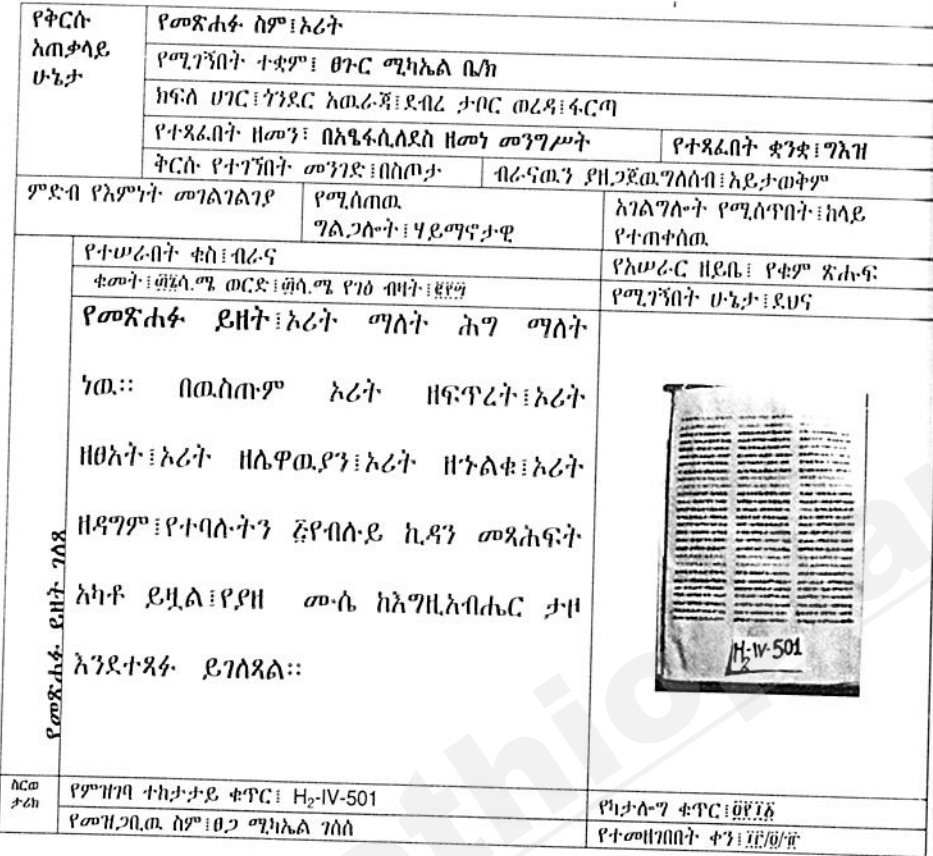 የቅርሱ አጠቃላይ ሁኔታ
የመጽሐፉ ስም፤ኦሪት
የሚገኝበት ተቋም፤ ፀጉር ሚካኤል ቤ/ክ
ክፍለ ሀገር፤ጎንደር አዉራጃ፤ደብረ ታቦር ወረዳ፤ፋርጣ
የተጻፈበት ዘመን፣ በአፄፋሲለደስ ዘመነ መንግሥት
የተጻፈበት ቋንቋ፤ግእዝ
ቅርሱ የተገኘበት መንገድ፤በስጦታ
ብራናዉን ያዘጋጀዉግለሰብ፤አይታወቅም
ምድብ የእምነት መገልገልገያ
የሚሰጠዉ
ግልጋሎት፤ሃይማኖታዊ
አገልግሎት የሚሰጥበት፤ከላይ
የተጠቀሰዉ
የተሠራበት ቁስ፤ብራና
የአሠራር ዘይቤ፤ የቁም ጽሑፍ
ቁመት፤ሳ.ሜ ወርድ፤ሳ.ሜ የገፅ ብዛት፤
የሚገኝበት ሁኔታ፤ደህና
የመጽሐፉ ይዘት ገለጻ
የመጽሐፉ ይዘት፤ኦሪት ማለት ሕግ ማለት
ነዉ። በዉስጡም ኦሪት ዘፍጥረት፤ኦሪት
ዘፀአት፤ኦሪት ዘሌዋዉያን፤ኦሪት ዘኍልቁ፤ኦሪት
ዘዳግም፤የተባሉትን ፭የብሉይ ኪዳን መጻሕፍት
አካቶ ይዟል፤የያዘ ሙሴ ከእግዚአብሔር ታዞ
እንደተጻፉ ይገለጻል።
H₂-IV-501
ስርወ ታሪክ
የምዝገባ ተከታታይ ቁጥር፤ H₂-IV-501
የካታሎግ ቁጥር፤
የመዝጋቢዉ ስም፤ፀጋ ሚካኤል ገሰሰ
የተመዘገበበት ቀን፤